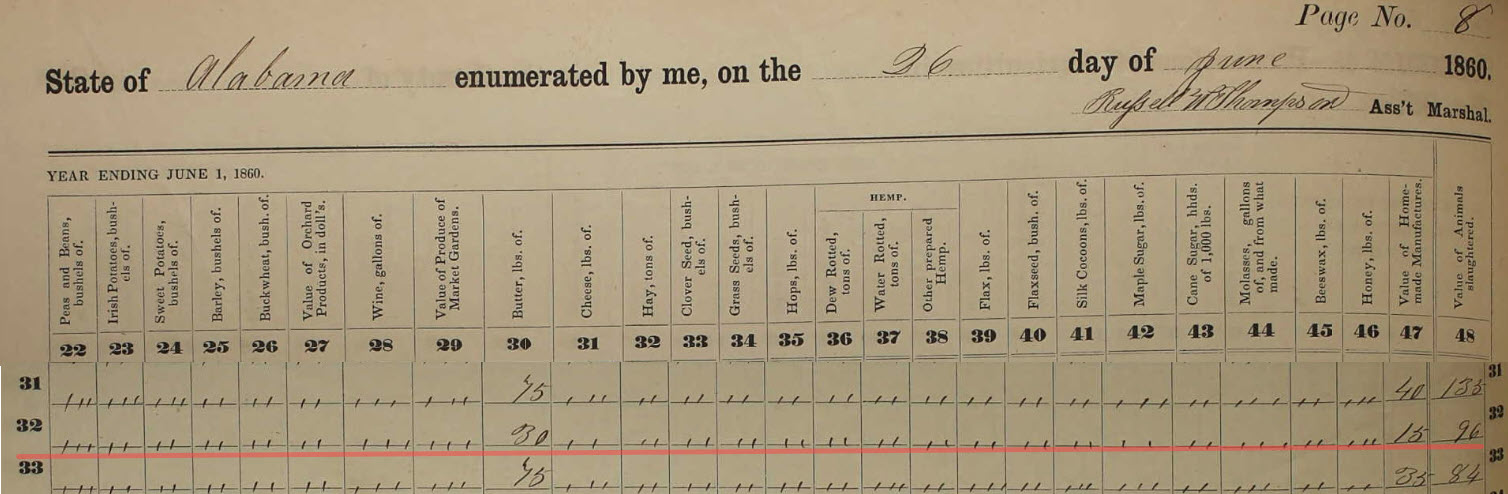 Page No. 8
State of Alabama enumerated by me, on the 26 day of June 1860.
Russell W Thompson Ass't Marshal.
YEAR ENDING JUNE 1, 1860.
HEMP.
Peas and Beans,
bushels of.
Irish Potatoes, bush-
els of.
Sweet Potatoes,
bushels of.
Barley, bushels of.
Buckwheat, bush. of.
Value of Orchard
Products, in doll's.
Wine, gallons of.
Value of Produce of
Market Gardens.
Butter, lbs. of.
Cheese, lbs. of.
Hay, tons of.
Clover Seed, bush-
els of.
Grass Seeds, bush-
els of.
Hops, lbs. of.
Dew Rotted,
tons of.
Water Rotted,
tons of.
Other prepared
Hemp.
Flax, lbs. of.
Flaxseed, bush. of.
Silk Cocoons, lbs. of.
Maple Sugar, lbs. of.
Cane Sugar, hhds.
of 1,000 lbs.
Molasses, gallons
of, and from what
made.
Beeswax, lbs. of.
Honey, lbs. of.
Value of Home-
made Manufactures.
Value of Animals
slaughtered.
22 23 24 25 26 27 28 29 30 31 32 33 34 35 36 37 38 39 40 41 42 43 44 45 46 47 48
31 75 40 135 31
32 30 15 96 32
33 75 35 84 33